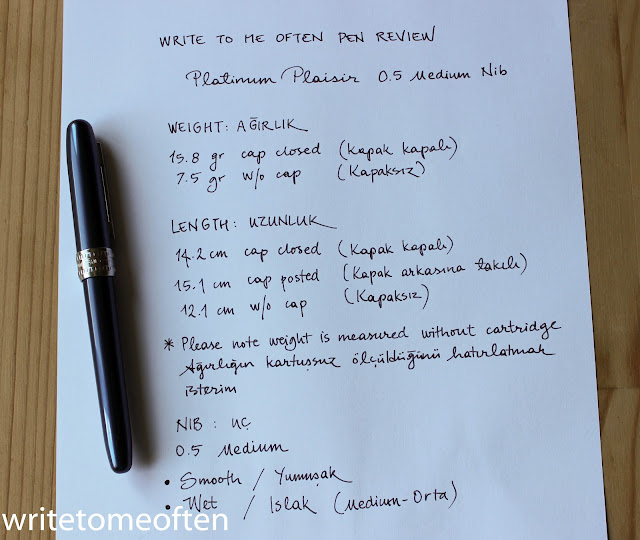 WRITE TO ME OFTEN PEN REVIEW
Platinum Plaisir 0.5 Medium Nib
WEIGHT: AĞIRLIK
15.8 gr cap closed (kapak kapalı)
7.5 gr w/o cap (Kapaksız)
LENGTH: UZUNLUK
14.2 cm cap closed (Kapak kapalı)
15.1 cm cap posted (Kapak arkasına takılı)
12.1 cm w/o cap (Kapaksız)
* Please note weight is measured without cartridge
Ağırlığın kartuşsuz ölçüldüğünü hatırlatmak
isterim
NIB : UÇ
0.5 Medium
• Smooth / Yumuşak
• Wet / Islak (Medium-Orta)
writetomeoften